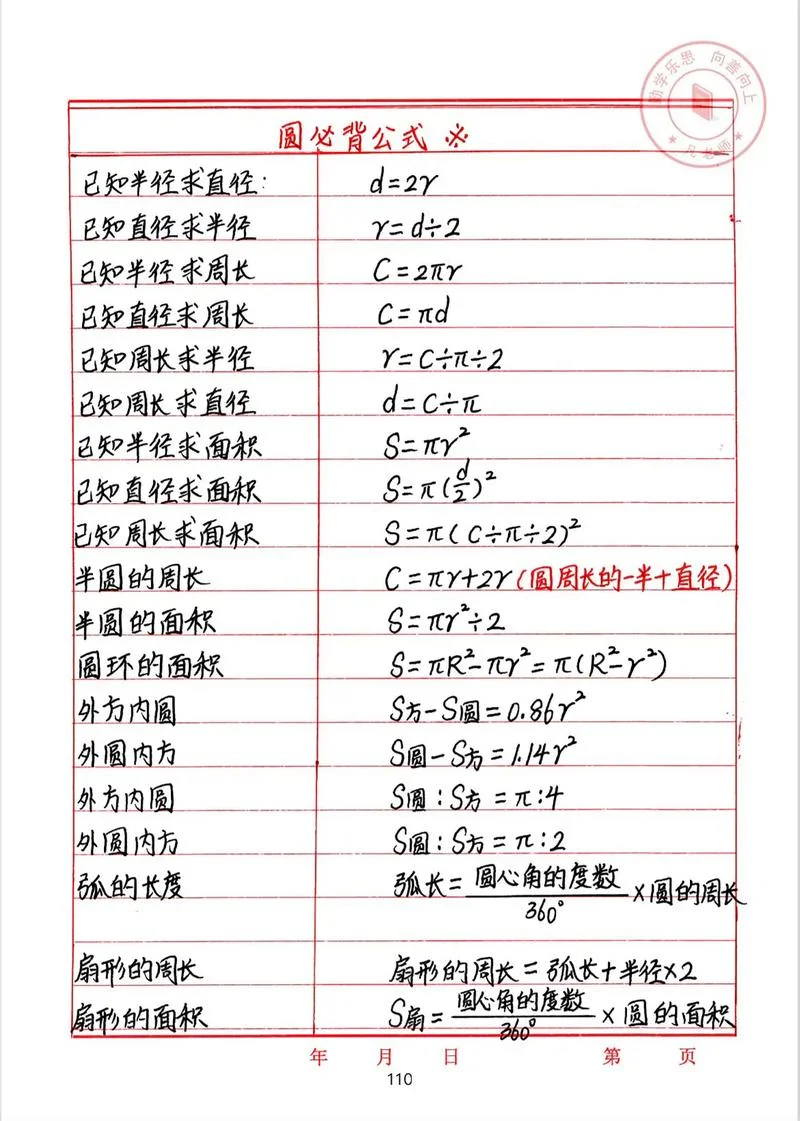 勤学乐思 向善向上
★ 凡老师 ★
圆必背公式 ※
已知半径求直径: d=2r
已知直径求半径 r=d÷2
已知半径求周长 C=2πr
已知直径求周长 C=πd
已知周长求半径 r=C÷π÷2
已知周长求直径 d=C÷π
已知半径求面积 S=πr²
已知直径求面积 S=π(d/2)²
已知周长求面积 S=π(C÷π÷2)²
半圆的周长 C=πr+2r(圆周长的一半+直径)
半圆的面积 S=πr²÷2
圆环的面积 S=πR²-πr²=π(R²-r²)
外方内圆 S方-S圆=0.86r²
外圆内方 S圆-S方=1.14r²
外方内圆 S圆:S方=π:4
外圆内方 S圆:S方=π:2
弧的长度 弧长=圆心角的度数/360°×圆的周长
扇形的周长 扇形的周长=弧长+半径×2
扇形的面积 S扇=圆心角的度数/360°×圆的面积
年 月 日 第 页
110